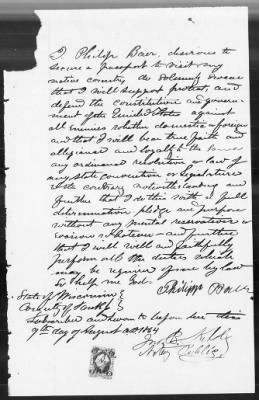 I Philipp Baer, desirous to
secure a Passport to visit my
native country do solemnly swear
that I will support protect, and
defend the Constitution and govern-
ment of the United States against
all enemies whether domestic or foreign
and that I will bear true faith and
allegiance and loyalty to the same
any ordinance resolution or law of
any state convention or Legislature
to the contrary notwithstanding and
further that I do this with a full
determination pledge and purpose
without any mental reservation or
evasion whatsoever and further
that I will well and faithfully
perform all the duties which
may be required of me by law
So help me God.
Philipp Baer
State of Wisconsin
County of
Subscribed and sworn to before me this
9th day of August AD 1864
Notary Public